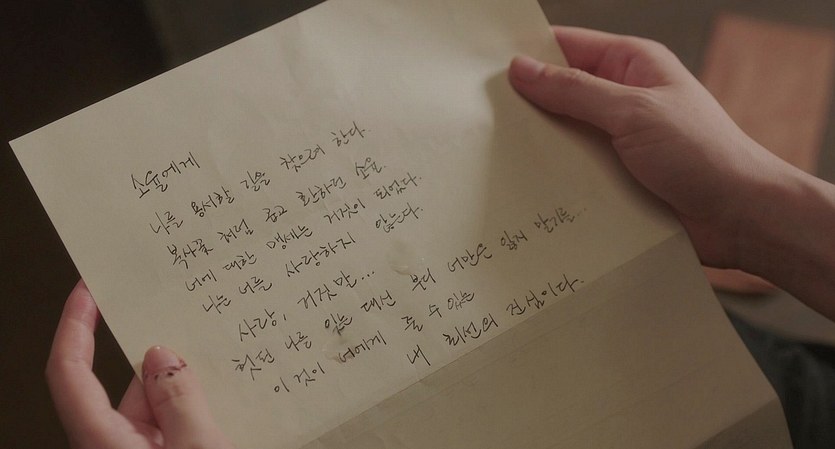 소율에게
나를 용서할 길을 찾으려 한다.
복사꽃 처럼 곱고 환하던 소율.
너에 대한 맹세는 거짓이 되었다.
나는 너를 사랑하지 않는다.
사랑, 거짓말...
헛된 나를 잊는 대신 부디 너만은 잃지 말기를...
이것이 너에게 줄 수 있는
내 최선의 진심이다.